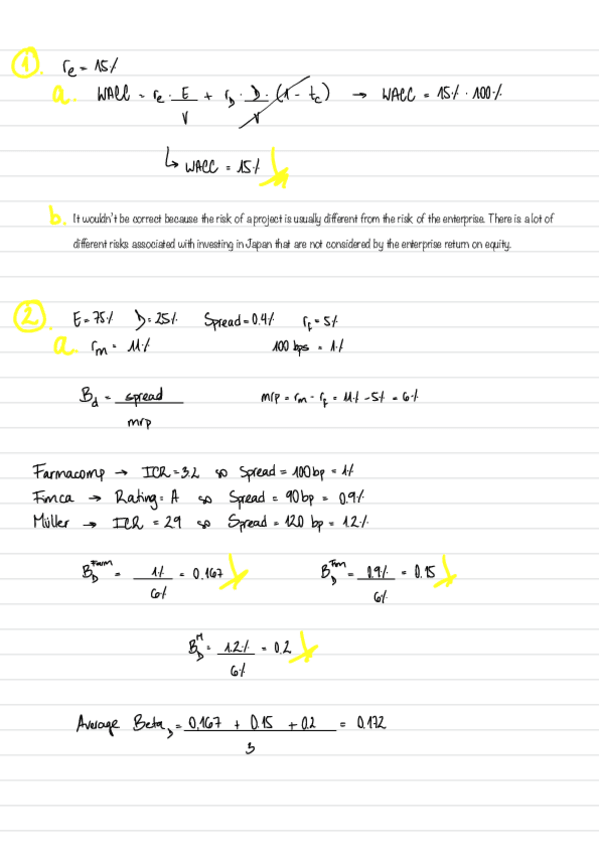 1. re = 15%
a. WACC = re · E/V + rD · D/V · (1 - tc) → WACC = 15% · 100%
↳ WACC = 15%
b. It wouldn't be correct because the risk of a project is usually different from the risk of the enterprise. There is a lot of
different risks associated with investing in Japan that are not considered by the enterprise return on equity.
2. E = 75% D = 25% Spread = 0.4% rf = 5%
a. rm = 11% 100 bps = 1%
Bd = spread/mrp mrp = rm - rf = 11% - 5% = 6%
Farmacomp → ICR = 3.2 ⇒ Spread = 100bp = 1%
Fimca → Rating = A ⇒ Spread = 90bp = 0.9%
Müller → ICR = 2.9 ⇒ Spread = 120 bp = 1.2%
BD^Farm = 1%/6% = 0.167 BD^Fim = 0.9%/6% = 0.15
BD^M = 1.2%/6% = 0.2
Average BetaD = 0.167 + 0.15 + 0.2/3 = 0.172